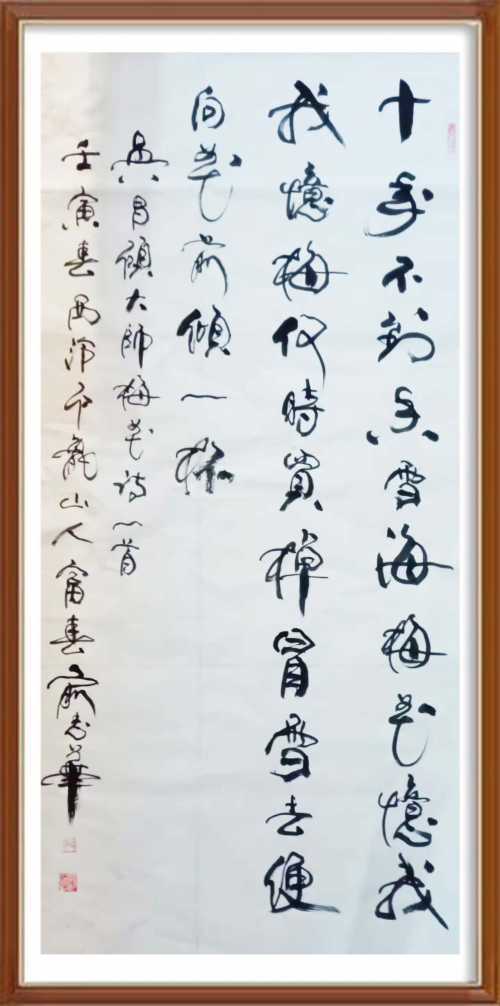 十年不到香雪海梅花憶我
我憶梅何時買棹冒雪去便
向花前傾一杯
吳昌碩大師梅花詩一首
壬寅春西龍山人富春俞志華